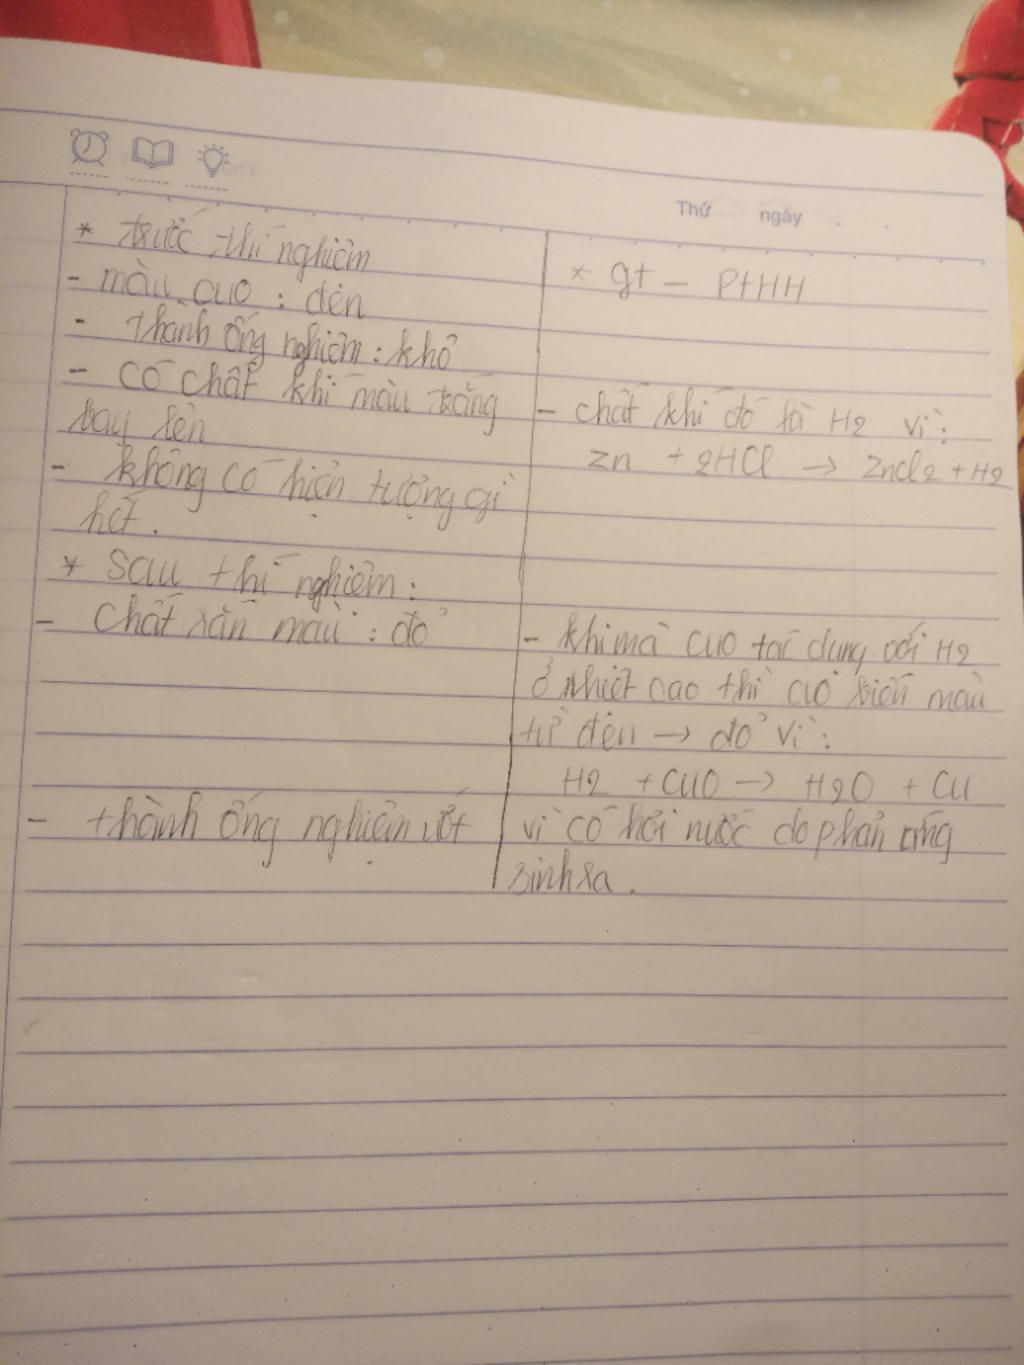 Thứ ngày
* trước thí nghiệm
- màu CuO : đen
- thành ống nghiệm : khô
- có chất khí màu trắng
bay lên
- không có hiện tượng gì
hết .
* sau thí nghiệm :
- chất rắn màu : đỏ
- thành ống nghiệm ướt
* gt - PTHH
- chất khí đó là H2 vì :
Zn + 2HCl → ZnCl2 + H2
- khi mà CuO tác dụng với H2
ở nhiệt cao thì CuO biến màu
từ đen → đỏ vì :
H2 + CuO → H2O + Cu
vì có hơi nước do phản ứng
sinh ra .